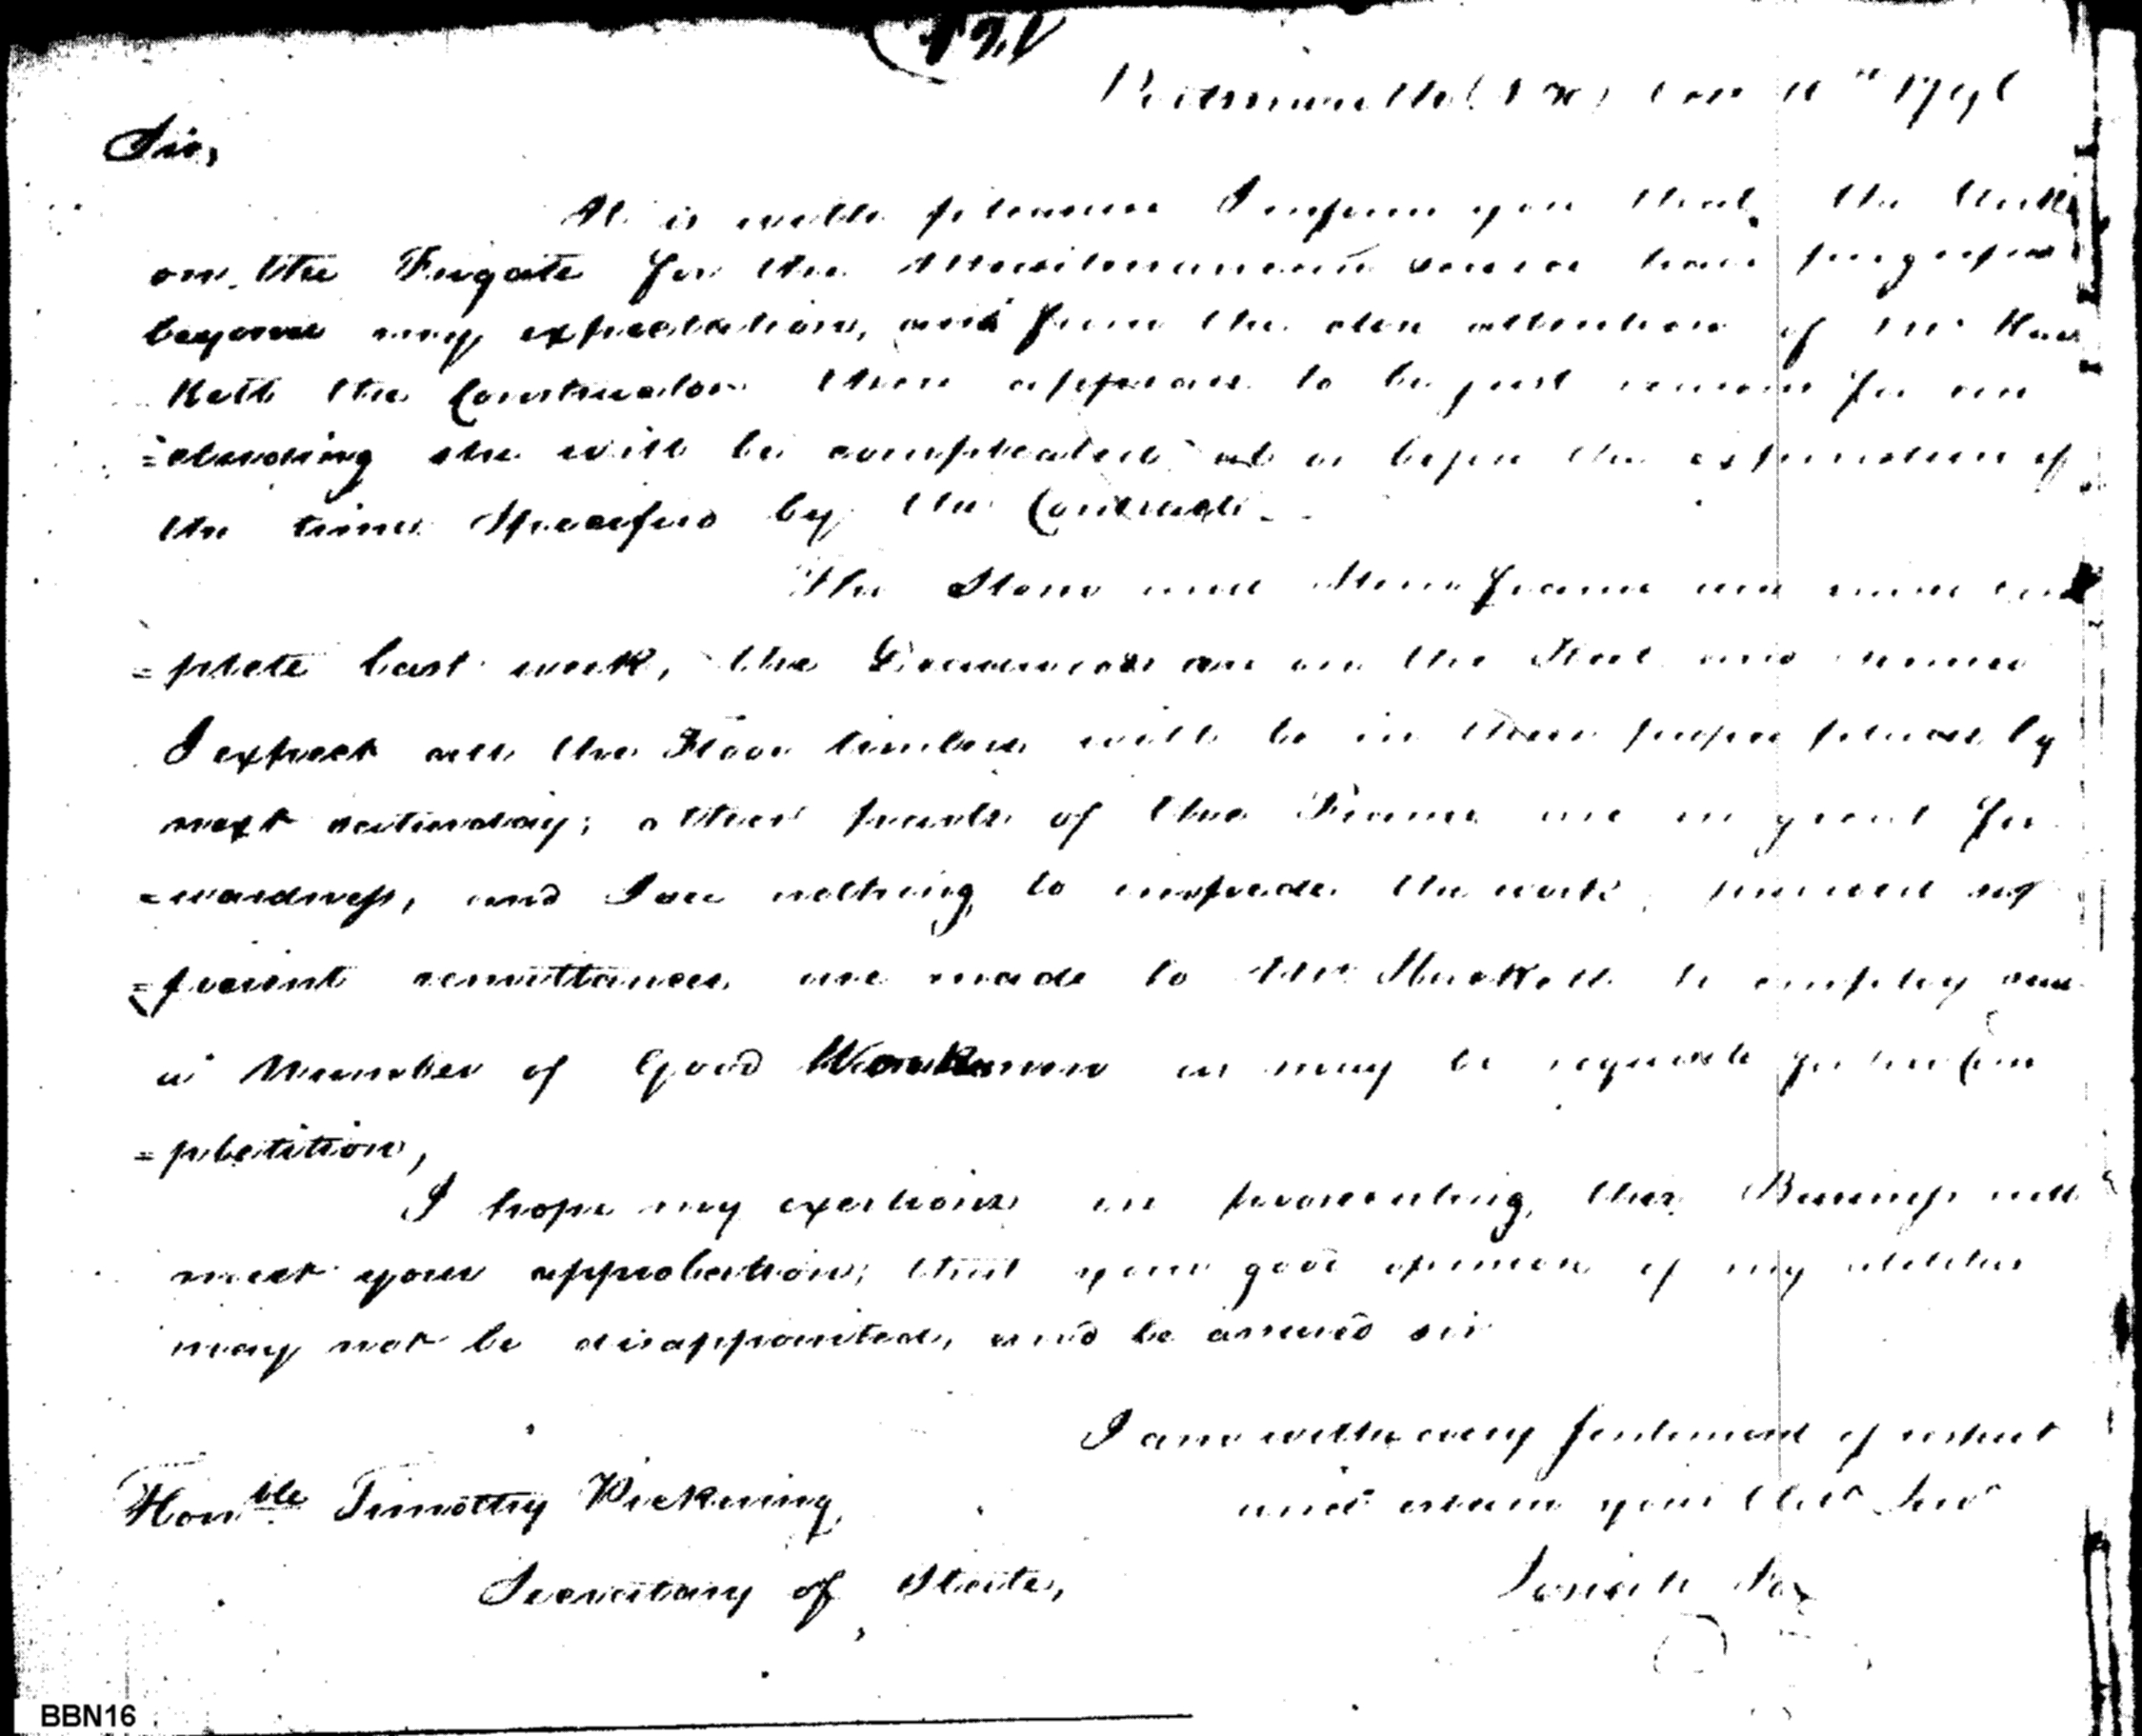 Portsmouth (NH) 11th 1796
Sir,
It is with pleasure I inform you that the Work
on the Frigate for the Mediterranean service have progressed
beyond my expectation, and from the close attention of Mr Hac
kett the Constructor there appears to be just reason for con
=cluding she will be compleated at or before the expiration of
the time Specified by the Contract.
The Stem and Stern frame were com
=plete last week, the are on the Keel and
I expect all the Floor timbers will be in their proper places by
next saturday; other parts of the Frame are in great for
=wardness, and I see nothing to impede the work, provided suf
=ficient remittances are made to Mr Hackett to employ such
a Number of Good Workmen as may be requisite for her Com
=pletition,
I hope my exertions in prosecuting this Business will
meet your approbation; that your good opinion of my abilities
may not be disappointed, and be assured sir
I am with every sentiment of respect
and esteem your Obdt Servt
Josiah Fox
Honble Timothy Pickering,
Secretary of State,
BBN16